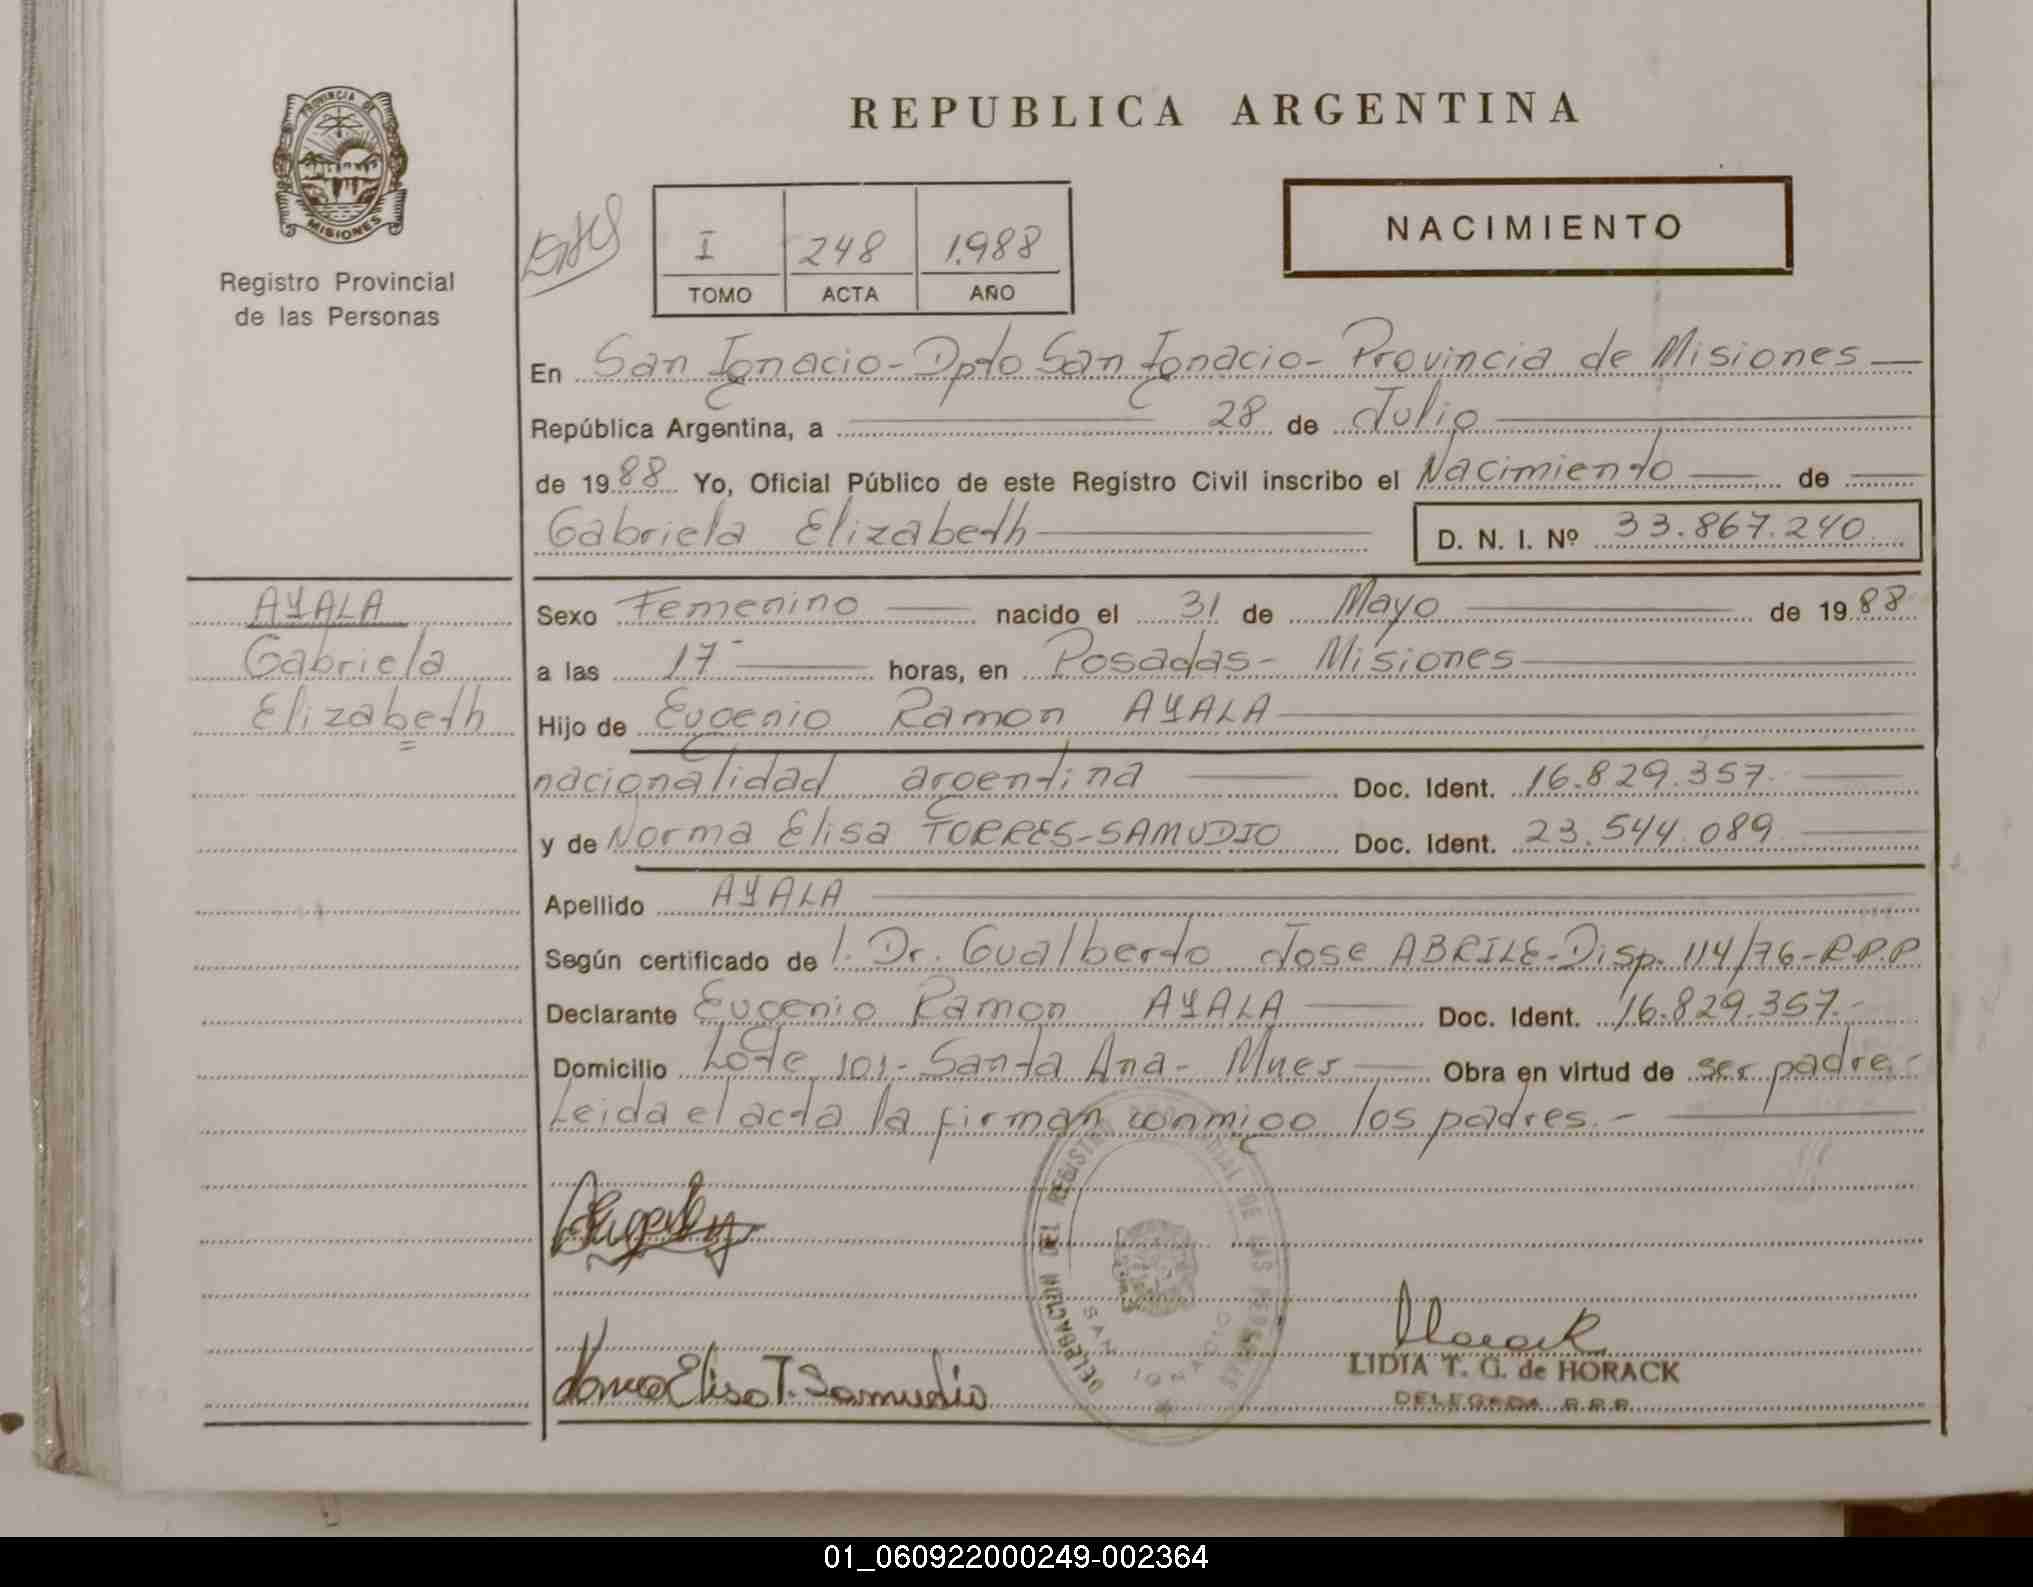 PROVINCIA DE
MISIONES
Registro Provincial
de las Personas
REPUBLICA ARGENTINA
I 248 1.988
TOMO ACTA AÑO
NACIMIENTO
En San Ignacio - Dpto San Ignacio - Provincia de Misiones
República Argentina, a 28 de Julio
de 1988 Yo, Oficial Público de este Registro Civil inscribo el Nacimiento de
Gabriela Elizabeth D. N. I. Nº 33.867.240
AYALA
Gabriela
Elizabeth
Sexo Femenino nacido el 31 de Mayo de 1988
a las 17 horas, en Posadas - Misiones
Hijo de Eugenio Ramon AYALA
nacionalidad argentina Doc. Ident. 16.829.357.
y de Norma Elisa TORRES-SAMUDIO Doc. Ident. 23.544.089
Apellido AYALA
Según certificado de l. Dr. Gualberto Jose ABRILE - Disp. 114/76 - R.P.P
Declarante Eugenio Ramon AYALA Doc. Ident. 16.829.357.-
Domicilio Lote 101 - Santa Ana - Mnes Obra en virtud de ser padre.-
Leida el acta la firman conmigo los padres.-
DELEGACION DEL REGISTRO PROVINCIAL DE LAS PERSONAS
SAN IGNACIO
Norma Elisa T. Samudio
Horack
LIDIA T. G. de HORACK
DELEGADA R.P.P.
01_060922000249-002364